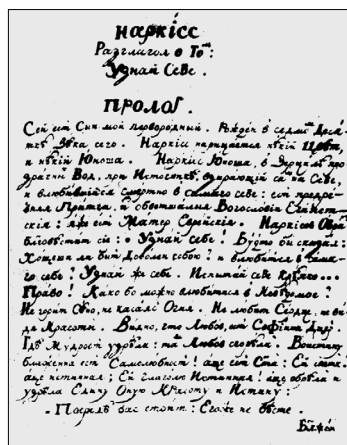 Наркісс
Разглагол о Том:
Узнай Себе.
Пролог.
Сей есть Сын мой первородный. Рожден в седмом Деся-
ткѣ Вѣка сего. Наркісс нарицается нѣкій Цвѣт,
и нѣкій Юноша. Наркісс Юноша, в Зерцалѣ про
зрачных Вод, при Источникѣ взирающій сам на Себе,
и влюбившійся смертно в самаго себе: есть предрев-
ная Притча, из обветшалыя Богословіи Египетс-
кія: яже есть Матер Еврейскія. Наркісов Образ
благовѣстит сіе: Узнай себе! Будто бы сказал:
Хощеш ли быт Доволен собою? и влюбится в самаго
го себе? Узнай же себе. Испытай себе крѣпко...
Право! Како бо можно влюбитися в Невѣдомое?
Не горит Сѣно, не касаяс Огня. Не любит Сердце, не ви-
дя Красоты. Видно, что Любов ест Софіина Дщер.
Гдѣ Мудрост узрѣла: там Любов сгорѣла. Воистину
блаженна ест Самолюбност! аще ест Свята: Ей свята
аще истинная; Ей глаголю Истинная! аще обрѣла и
узрѣла Едину Оную Красоту и Истину:
- Посредѣ вас стоит: Егоже не вѣсте.
Блажен